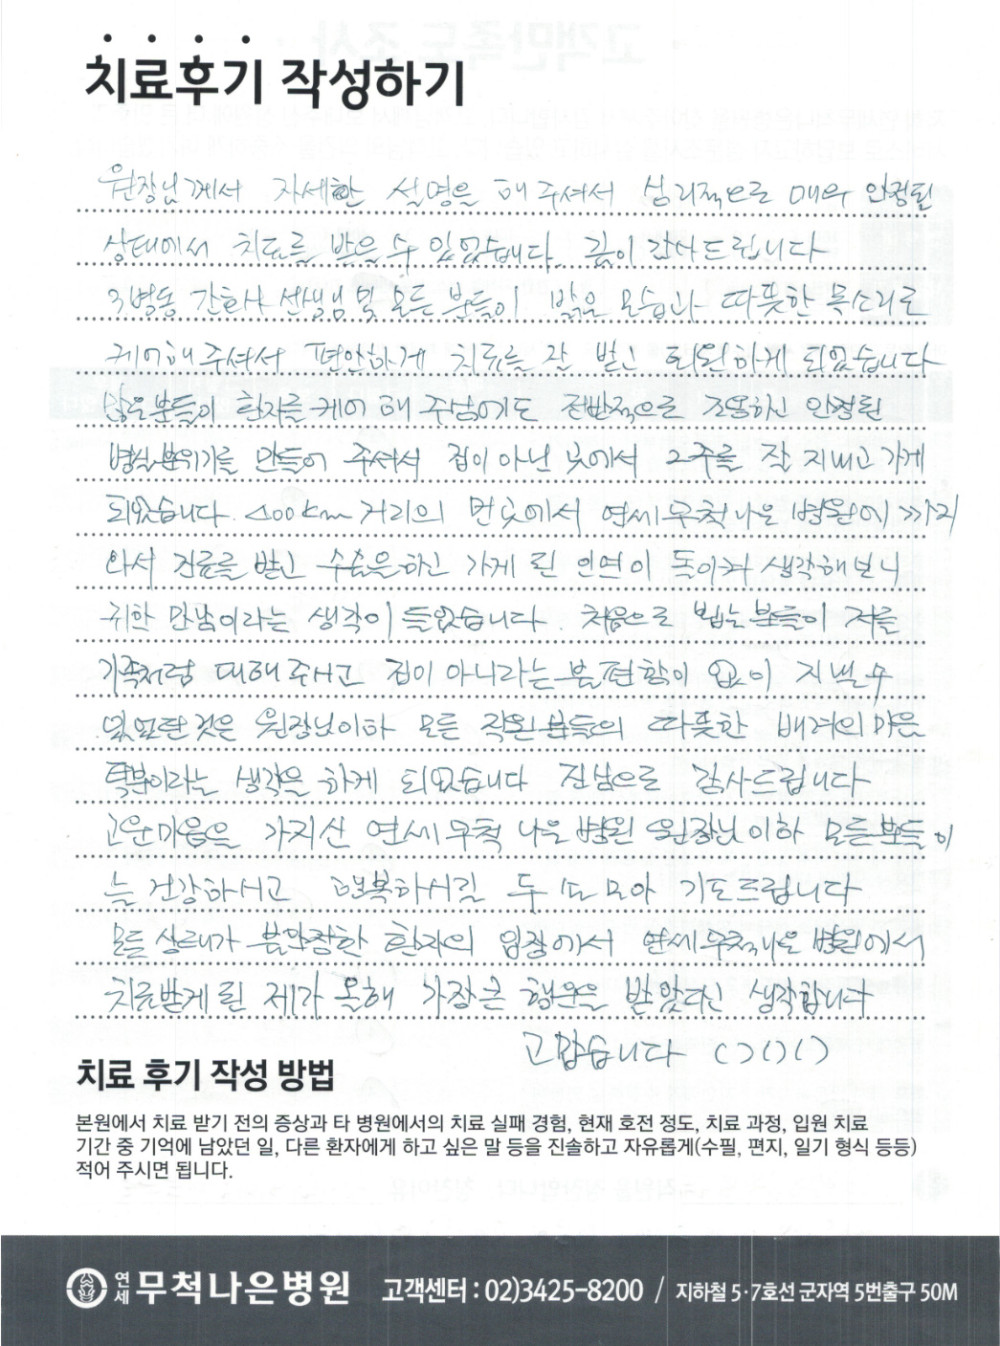 치료후기 작성하기
원장님께서 자세한 설명을 해 주셔서 심리적으로 매우 안정된
상태에서 치료를 받을 수 있었습니다. 깊이 감사드립니다
3병동 간호사 선생님 및 모든 분들이 밝은 모습과 따뜻한 목소리로
케어해 주셔서 편안하게 치료를 잘 받고 퇴원하게 되었습니다
많은분들이 환자를 케어 해 주심에도 전반적으로 조용하고 안정된
병실분위기를 만들어 주셔서 집이 아닌 곳에서 2주를 잘 지내고 가게
되었습니다. 400km 거리의 먼 곳에서 연세무척나은 병원에 까지
와서 진료를 받고 수술을 하고 가게 된 인연이 돌이켜 생각해보니
귀한 만남이라는 생각이 들었습니다. 처음으로 뵙는 분들이 저를
가족처럼 대해 주시고 집이 아니라는 불편함이 없이 지낼 수
있었던 것은 원장님이하 모든 직원 분들의 따뜻한 배려의 마음
덕분이라는 생각을 하게 되었습니다 진심으로 감사드립니다
고운마음을 가지신 연세무척 나은 병원 원장님 이하 모든분들이
늘 건강하시고 행복하시길 두 손 모아 기도드립니다
모든 상태가 불안정한 환자의 입장에서 연세무척나은 병원에서
치료받게 된 제가 올해 가장큰 행운을 받았다고 생각합니다
고맙습니다
치료 후기 작성 방법
본원에서 치료 받기 전의 증상과 타 병원에서의 치료 실패 경험, 현재 호전 정도, 치료 과정, 입원 치료
기간 중 기억에 남았던 일, 다른 환자에게 하고 싶은 말 등을 진솔하고 자유롭게(수필, 편지, 일기 형식 등등)
적어 주시면 됩니다.
연세 무척나은병원 고객센터 : 02)3425-8200 / 지하철 5·7호선 군자역 5번출구 50M